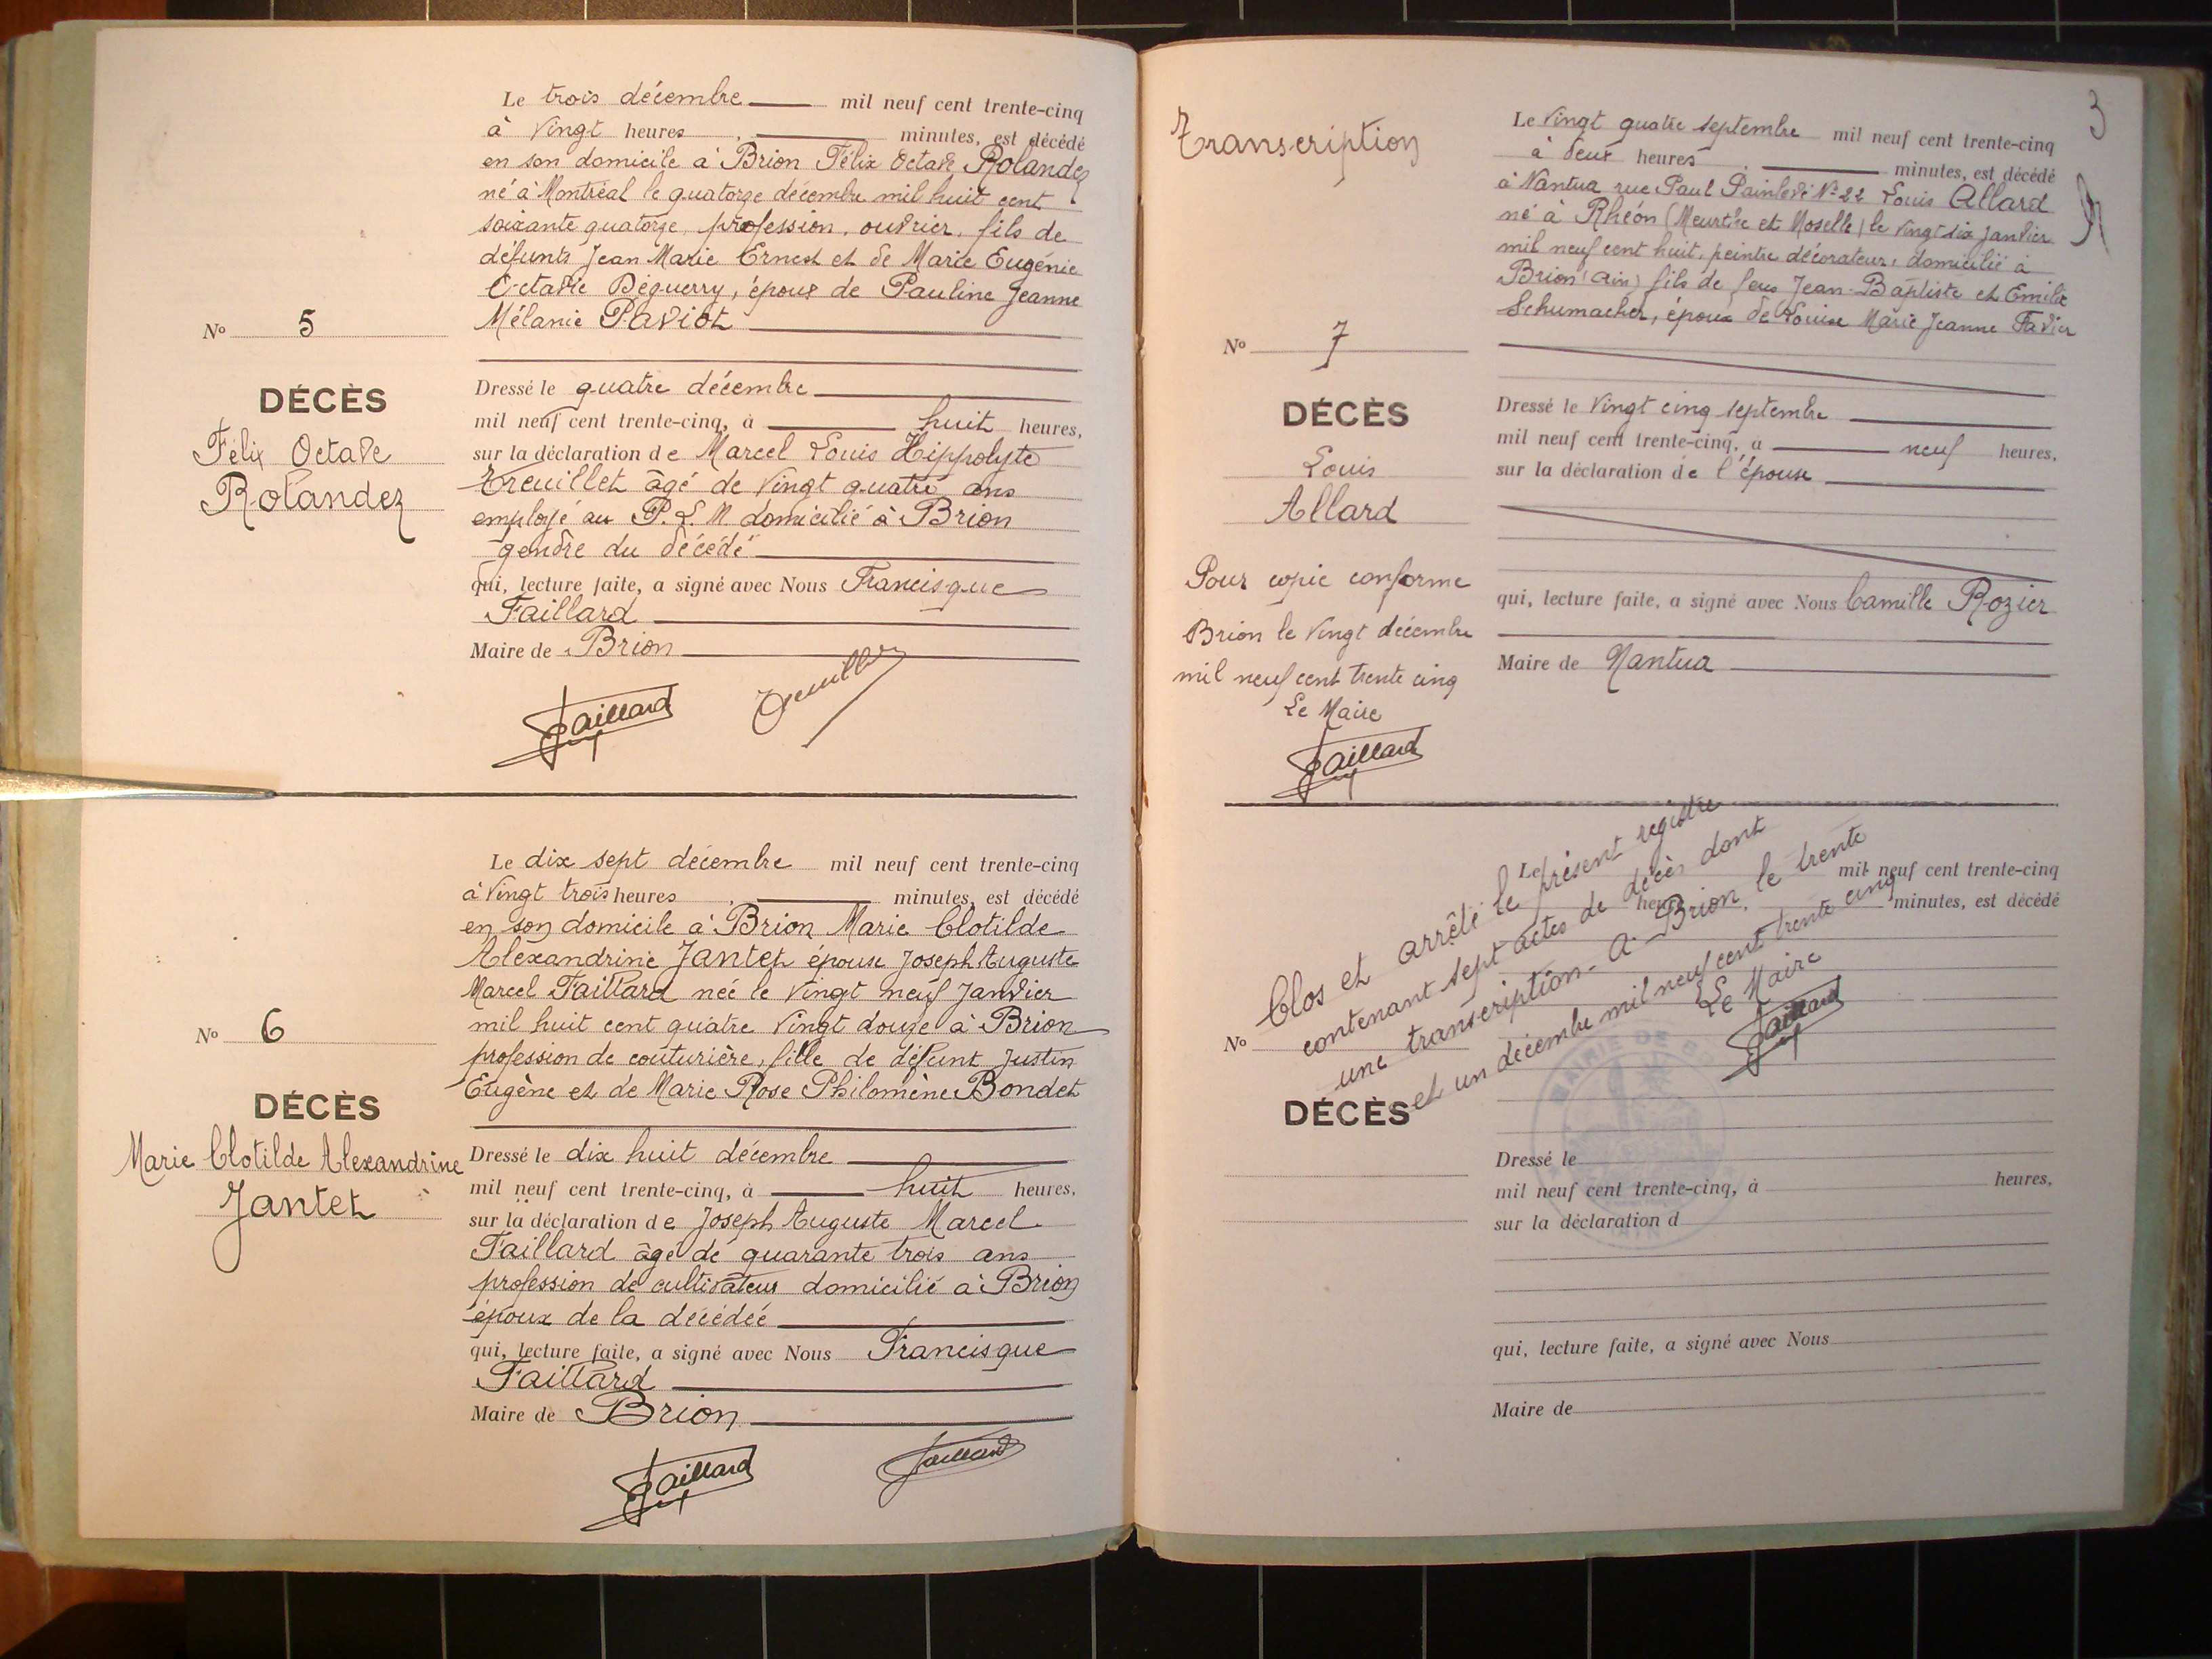 Le trois décembre mil neuf cent trente-cinq
à vingt heures minutes, est décédé
en son domicile à Brion Félix Octave Rolandez
né à Montréal le quatorze décembre mil huit cent
soixante quatorze, profession, ouvrier, fils de
défunts Jean Marie Ernest et de Marie Eugénie
Octavie Béguerry, époux de Pauline Jeanne
Mélanie Paviot
No 5
DÉCÈS
Félix Octave
Rolandez
Dressé le quatre décembre
mil neuf cent trente-cinq, à huit heures,
sur la déclaration de Marcel Louis Hippolyte
Treuillet âgé de vingt quatre ans
employé au P.L.M domicilié à Brion
gendre du décédé
qui, lecture faite, a signé avec Nous Francisque
Faillard
Maire de Brion
Faillard
Le dix sept décembre mil neuf cent trente-cinq
à vingt trois heures minutes, est décédé
en son domicile à Brion Marie Clotilde
Alexandrine Jantet épouse Joseph Auguste
Marcel Faillard née le vingt neuf Janvier
mil huit cent quatre vingt douze à Brion
profession de couturière, fille de défunt Justin
Eugène et de Marie Rose Philomène Bondet
No 6
DÉCÈS
Marie Clotilde Alexandrine
Jantet
Dressé le dix huit décembre
mil neuf cent trente-cinq, à huit heures,
sur la déclaration de Joseph Auguste Marcel
Faillard âgé de quarante trois ans
profession de cultivateur domicilié à Brion
époux de la décédée
qui, lecture faite, a signé avec Nous Francisque
Faillard
Maire de Brion
Faillard Faillard
3
Transcription
Le vingt quatre septembre mil neuf cent trente-cinq
à deux heures minutes, est décédé
à Nantua rue Paul Painlevé No 22 Louis Allard
né à Rhéon (Meurthe et Moselle) le vingt six janvier
mil neuf cent huit, peintre décorateur, domicilié à
Brion (Ain) fils de feus Jean-Baptiste et Emilie
Schumacher, époux de Louise Marie Jeanne Favier
No 7
DÉCÈS
Louis
Allard
Dressé le vingt cinq septembre
mil neuf cent trente-cinq, à neuf heures,
sur la déclaration de l'épouse
qui, lecture faite, a signé avec Nous Camille Rozier
Maire de Nantua
Pour copie conforme
Brion le vingt décembre
mil neuf cent trente cinq
Le Maire
Faillard
Clos et arrêté le présent registre
contenant sept actes de décès dont
une transcription - A Brion, le trente
et un décembre mil neuf cent trente cinq
Le Maire
Faillard
Le mil neuf cent trente-cinq
heures minutes, est décédé
No
DÉCÈS
MAIRIE DE
AIN
Dressé le
mil neuf cent trente-cinq, à heures,
sur la déclaration d
qui, lecture faite, a signé avec Nous
Maire de